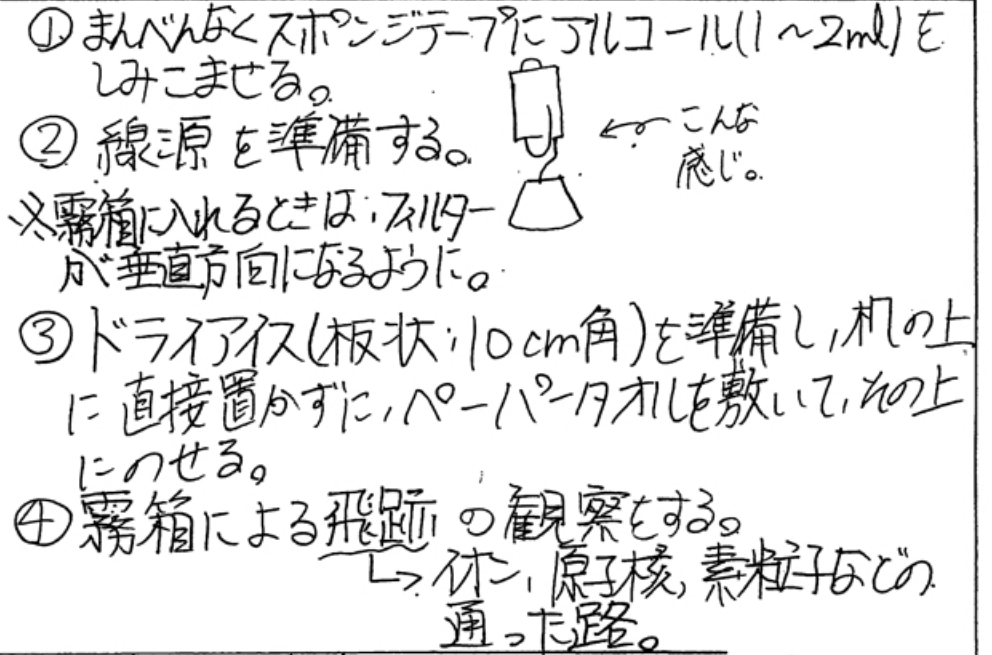 ① まんべんなくスポンジテープにアルコール(1～2ml)を
しみこませる。
② 線源を準備する。
こんな
感じ。
※霧箱に入れるときは、フィルター
が垂直方向になるように。
③ ドライアイス(板状;10cm角)を準備し、机の上
に直接置かずに、ペーパータオルを敷いて、その上
にのせる。
④ 霧箱による飛跡の観察をする。
↳ イオン、原子核、素粒子などの
通った路。